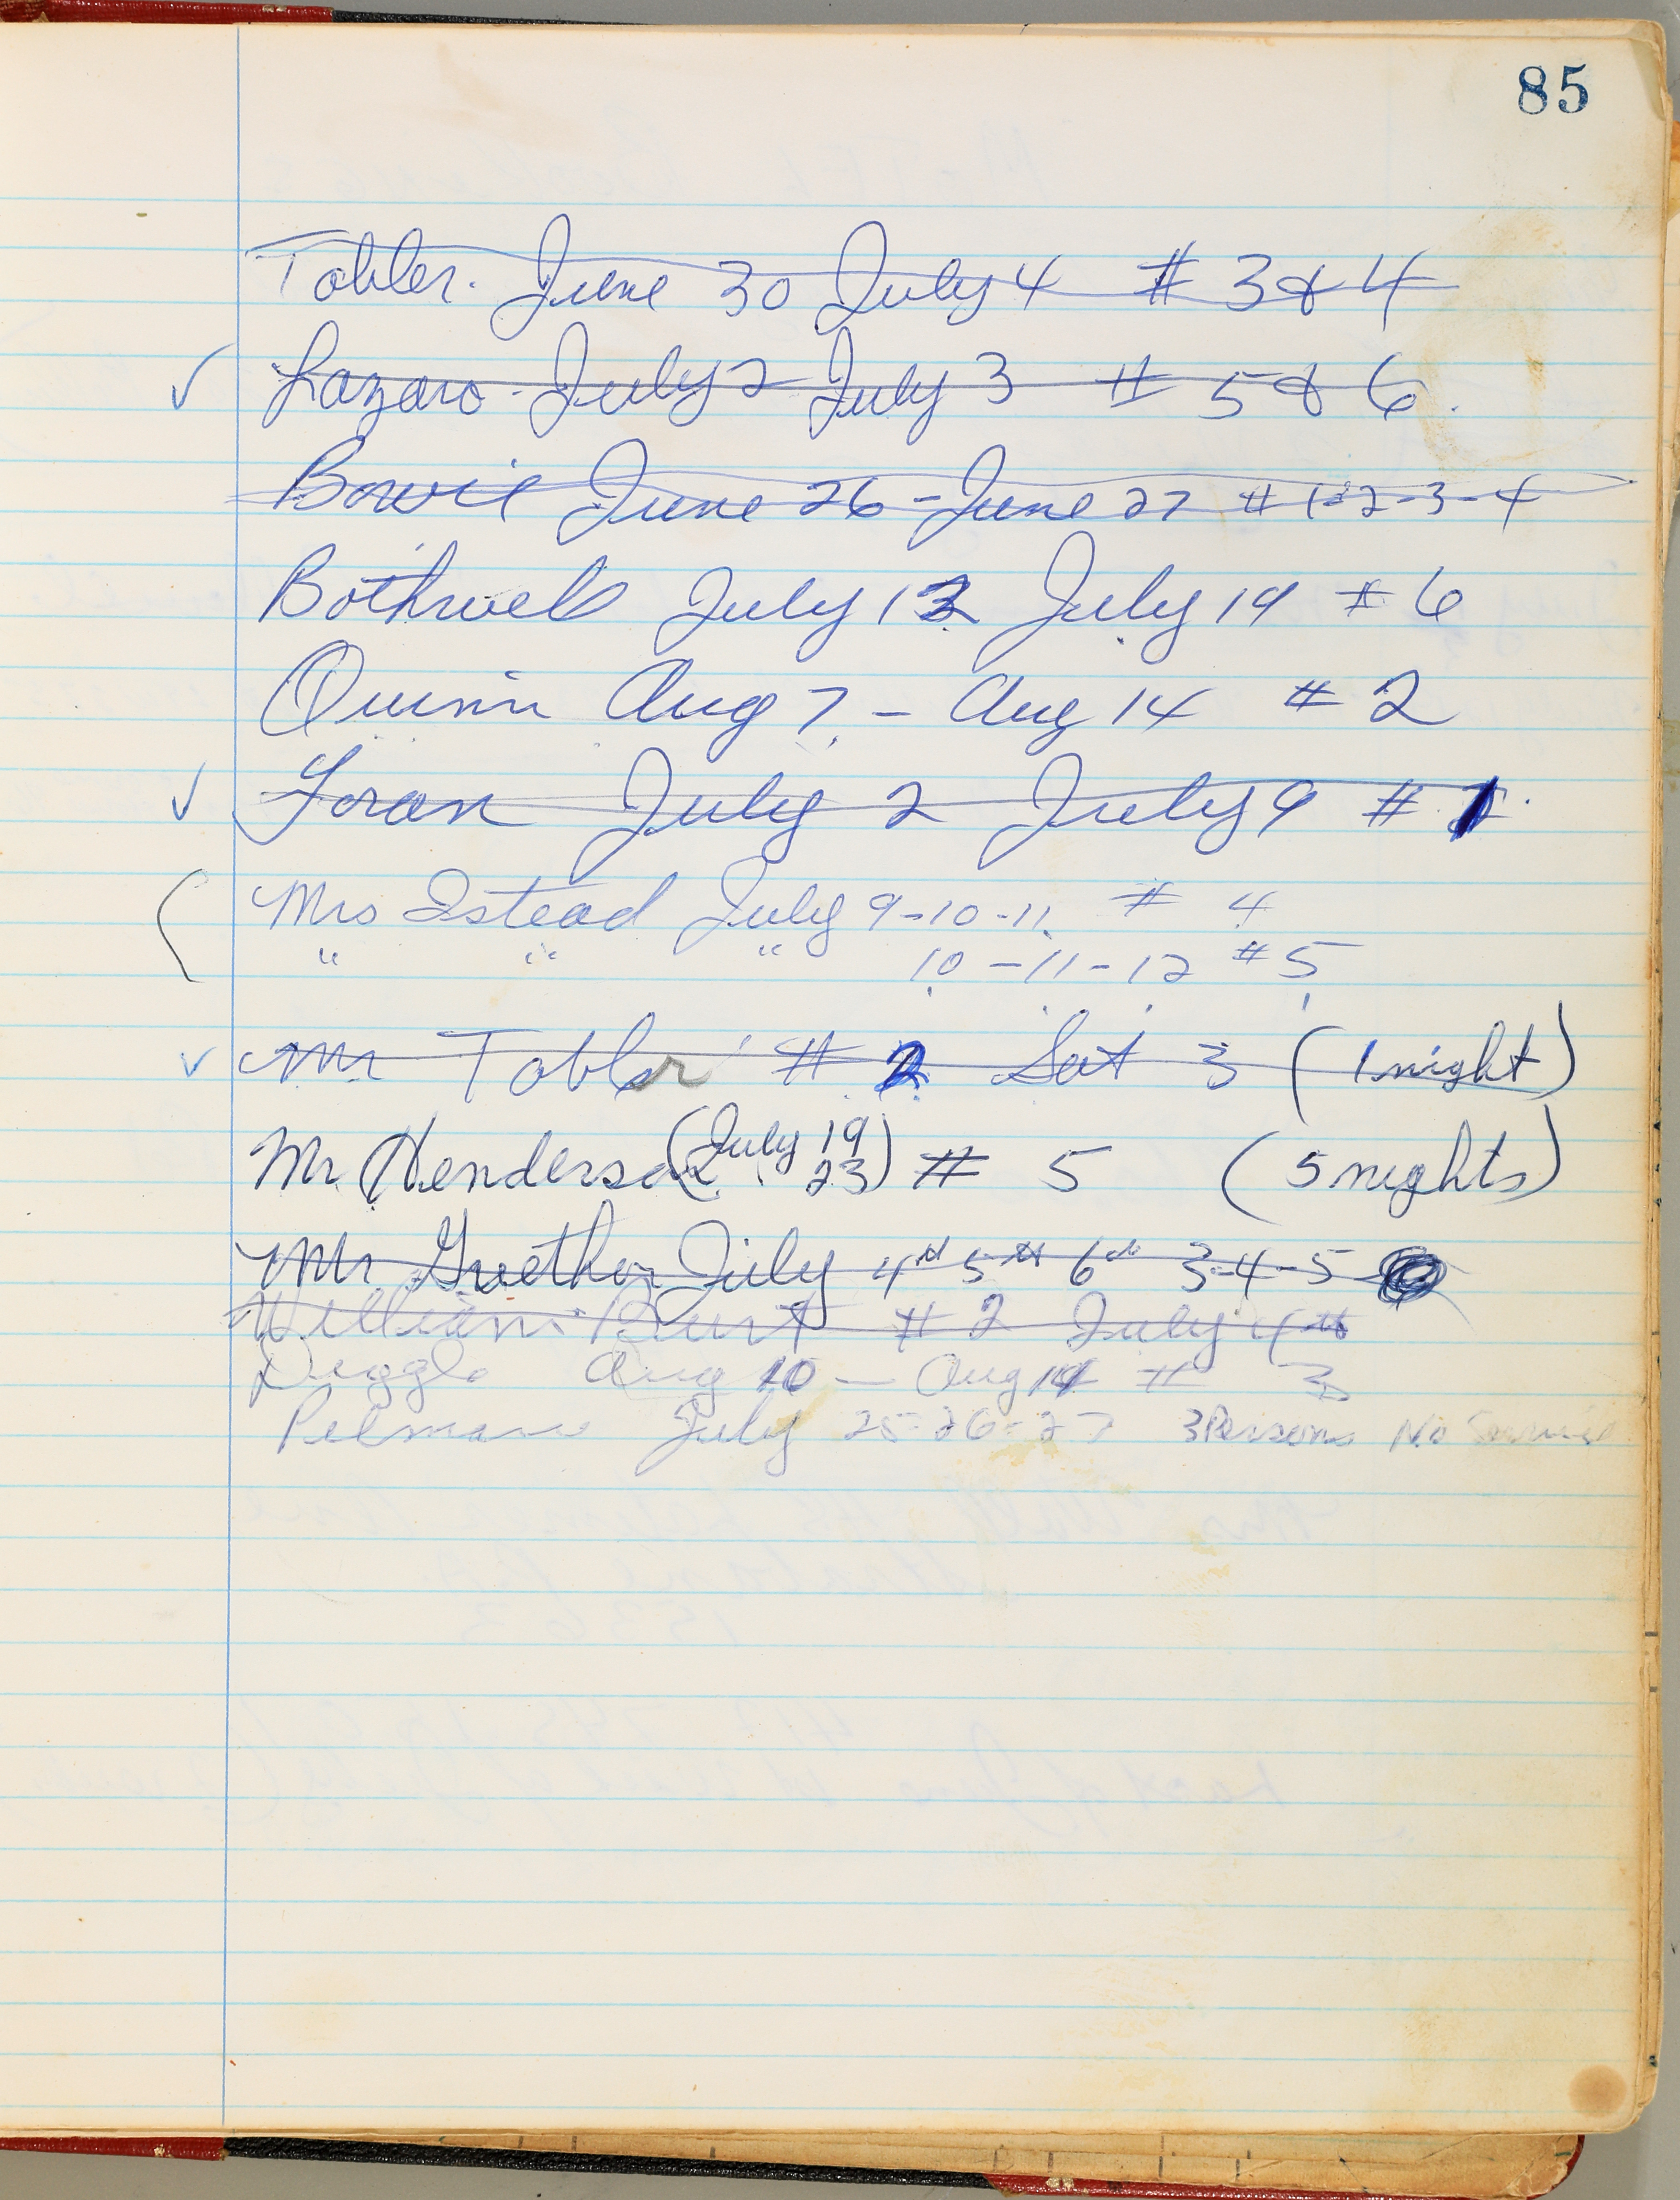 85
Tobler. June 30 July 4 # 3 & 4
Lazaro - July 2 July 3 # 5 & 6.
Bowie June 26 - June 27 # 1-2-3-4
Bothwell July 12 July 19 # 6
Quinn Aug 7 - Aug 14 # 2
Foran July 2 July 9 # 1
Mrs Istead July 9-10-11 # 4
" " " 10-11-12 # 5
Mr Tobler # 2 Sat 3 (1 night)
Mr Henderson (July 19 23) # 5 (5 nights)
Mr July 4th 5th 6th 3-4-5
William Burt # 2 July 4th
Duggle Aug 10 — Aug 14 # 3
Pelman July 25-26-27 3 Persons No